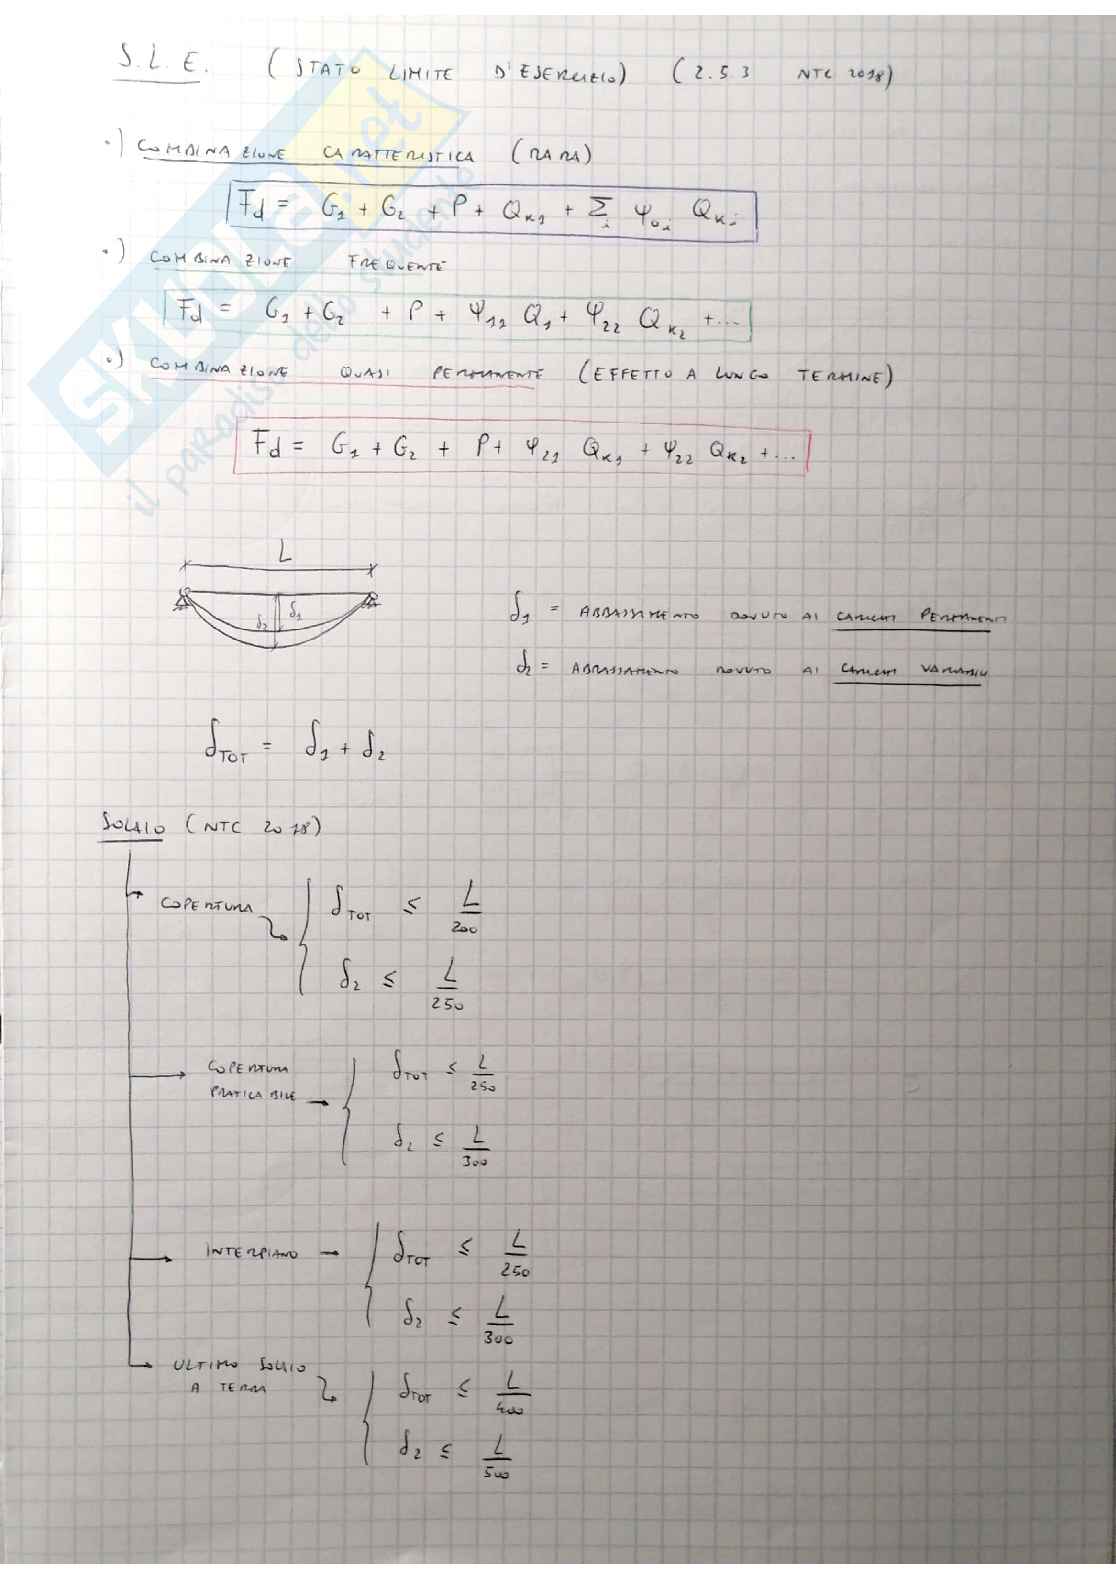 S.L.E. (STATO LIMITE D'ESERCIZIO) (2.5.3 NTC 2018)
•) COMBINAZIONE CARATTERISTICA (RARA)
Fd = G1 + G2 + P + QK1 + Σi ψ0i QKi
•) COMBINAZIONE FREQUENTE
Fd = G1 + G2 + P + ψ11 Q1 + ψ22 QK2 + ...
•) COMBINAZIONE QUASI PERMANENTE (EFFETTO A LUNGO TERMINE)
Fd = G1 + G2 + P + ψ21 QK1 + ψ22 QK2 + ...
SKUOLA.net
il paradiso dello studente
L
δ2 δ1
δ1 = ABBASSAMENTO DOVUTO AI CARICHI PERMANENTI
δ2 = ABBASSAMENTO DOVUTO AI CARICHI VARIABILI
δTOT = δ1 + δ2
SOLAIO (NTC 2018)
COPERTURA
δTOT ≤ L/200
δ2 ≤ L/250
COPERTURA
PRATICABILE
δTOT ≤ L/250
δ2 ≤ L/300
INTERPIANO
δTOT ≤ L/250
δ2 ≤ L/300
ULTIMO SOLAIO
A TERRA
δTOT ≤ L/400
δ2 ≤ L/500